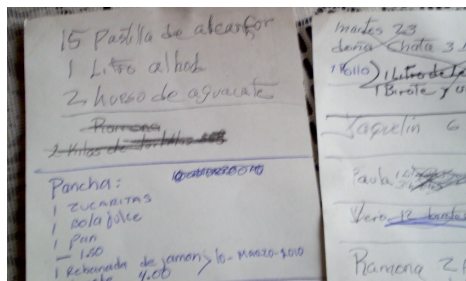 15 Pastilla de alcanfor
1 Litro alhol
2 hueso de aguacate
Ramona
2 Kilos de
Pancha:
1 ZUCARITAS
1 Bola dulce
1 Pan
1.50
1 Rebanada de jamon, 10-MARZO-2010
4.00
martes 23
doña Chata 3.
1 Pollo) 1 Litro de
1 Birote y
Jaquelin 6
Paula
Vero 12
Ramona 2